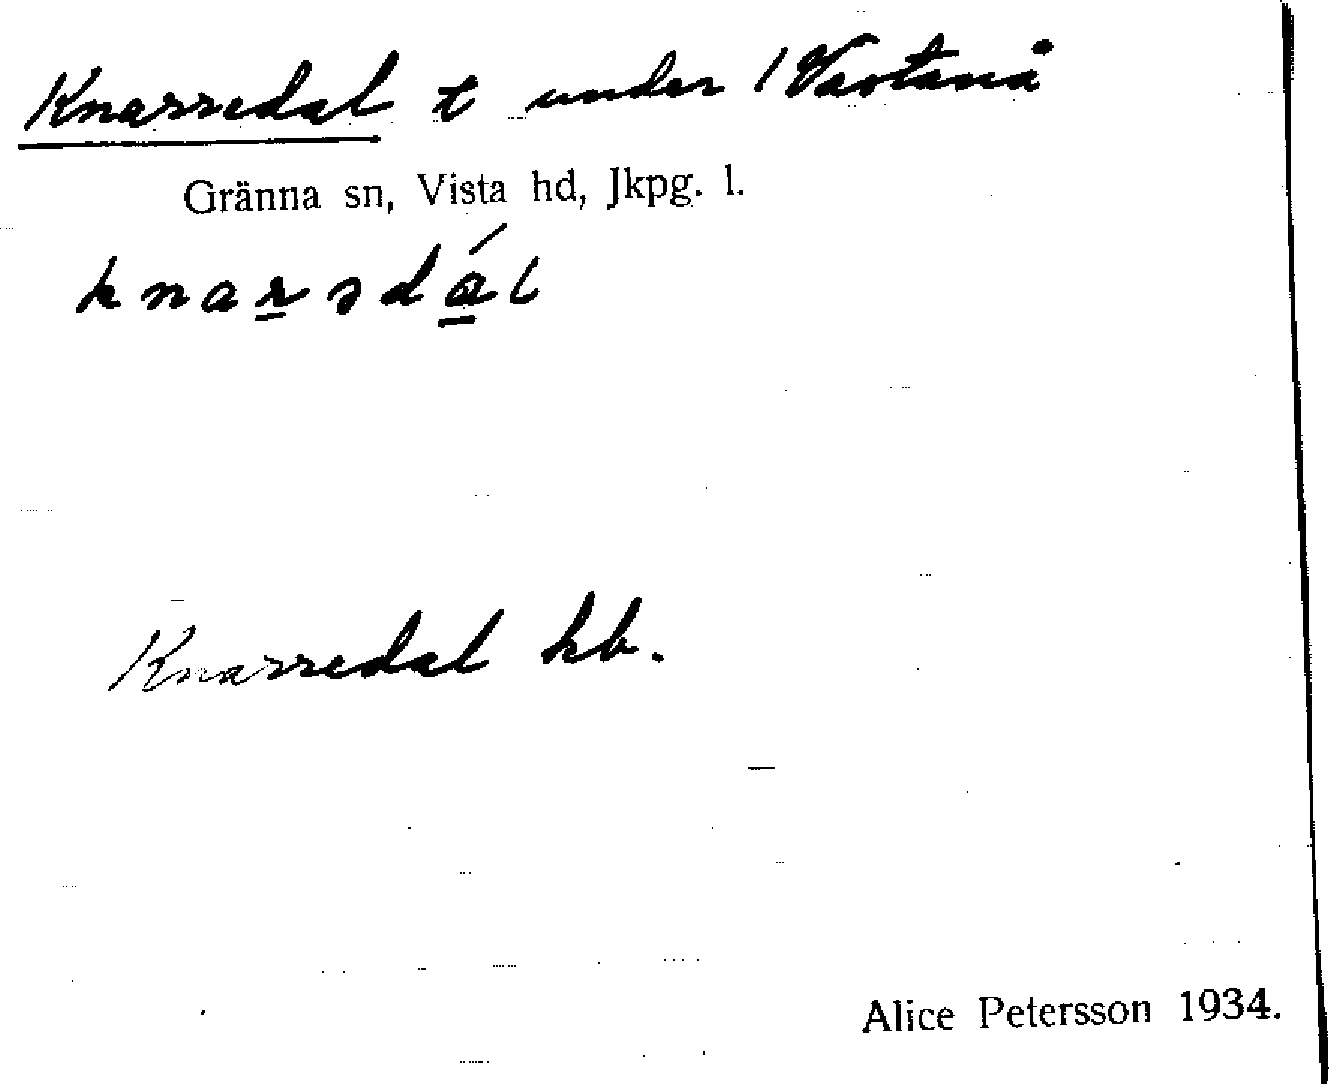 Knarredal t under 1 Västanå
Gränna sn, Vista hd, Jkpg. l.
knarədál
Knarredal kb.
Alice Petersson 1934.